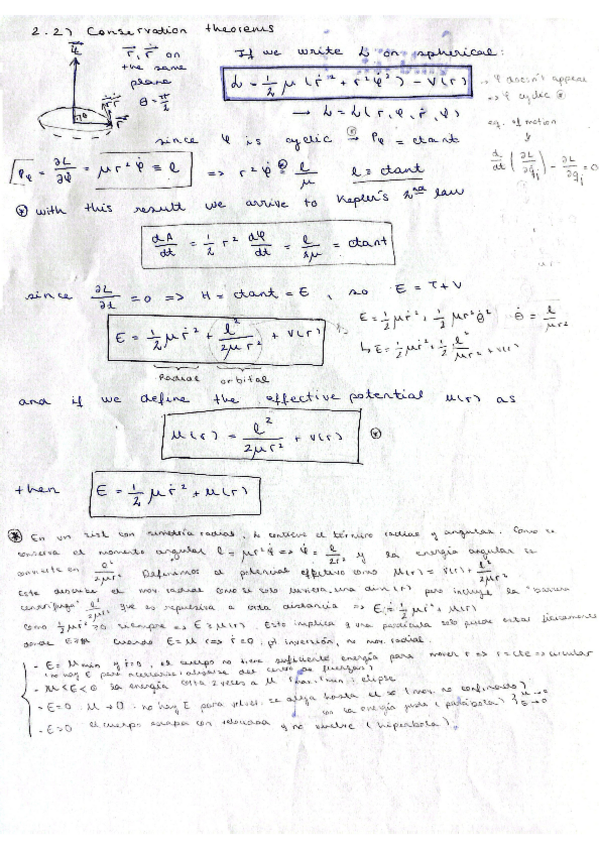 2.2) Conservation theorems
r, ṙ on
the same
plane
θ = π/2
If we write L on spherical:
L = 1/2 μ (ṙ² + r² φ̇²) - V(r)
→ φ doesn't appear
=> φ cyclic
→ L = L(r, φ, ṙ, φ̇)
eq. of motion
since φ is cyclic => Pφ = ctant
d/dt (∂L/∂q̇i) - ∂L/∂qi = 0
Pφ = ∂L/∂φ̇ = μ r² φ̇ ≡ l => r² φ̇ = l/μ l = ctant
* with this result we arrive to Kepler's 2nd law
dA/dt = 1/2 r² dφ/dt = l/2μ = ctant
since ∂L/∂t = 0 => H = ctant = E, so E = T + V
E = 1/2 μ ṙ² + 1/2 μ r² θ̇² θ̇ = l/μr²
E = 1/2 μ ṙ² + l²/2μr² + V(r)
↳ E = 1/2 μ ṙ² + 1/2 l²/μr² + V(r)
radial orbital
and if we define the effective potential u(r) as
u(r) = l²/2μr² + V(r)
then E = 1/2 μ ṙ² + u(r)
* En un sist con simetría radial, L contiene el término radial y angular. Como se
conserva el momento angular l = μr²φ̇ => φ̇ = y la energía angular se
convierte en l²/2μr². Definimos el potencial efectivo como u(r) = V(r) + l²/2μr²
este describe el mov. radial como si solo tuviera una dim (r) pero incluye la "barrera
centrífuga" l²/2μr² que es repulsiva a corta distancia => E = 1/2 μṙ² + u(r)
como 1/2 μṙ² ≥ 0 siempre => E ≥ u(r). Esto implica q una partícula solo puede estar físicamente
donde E≥u cuando E = u => ṙ = 0, pt inversión, no mov. radial.
- E = umin y ṙ=0, el cuerpo no tiene suficiente energía para mover r => r = cte => circular
(no hay E para acercarse/alejarse del centro de fuerzas)
- u < E < 0 la energía corta 2 veces a u rmax, rmin: elipse
- E=0 u → 0: no hay E para volver. se aleja hasta el ∞ (mov. no confinado)
(parábola)
- E>0 el cuerpo escapa con velocidad y no vuelve (hipérbola).